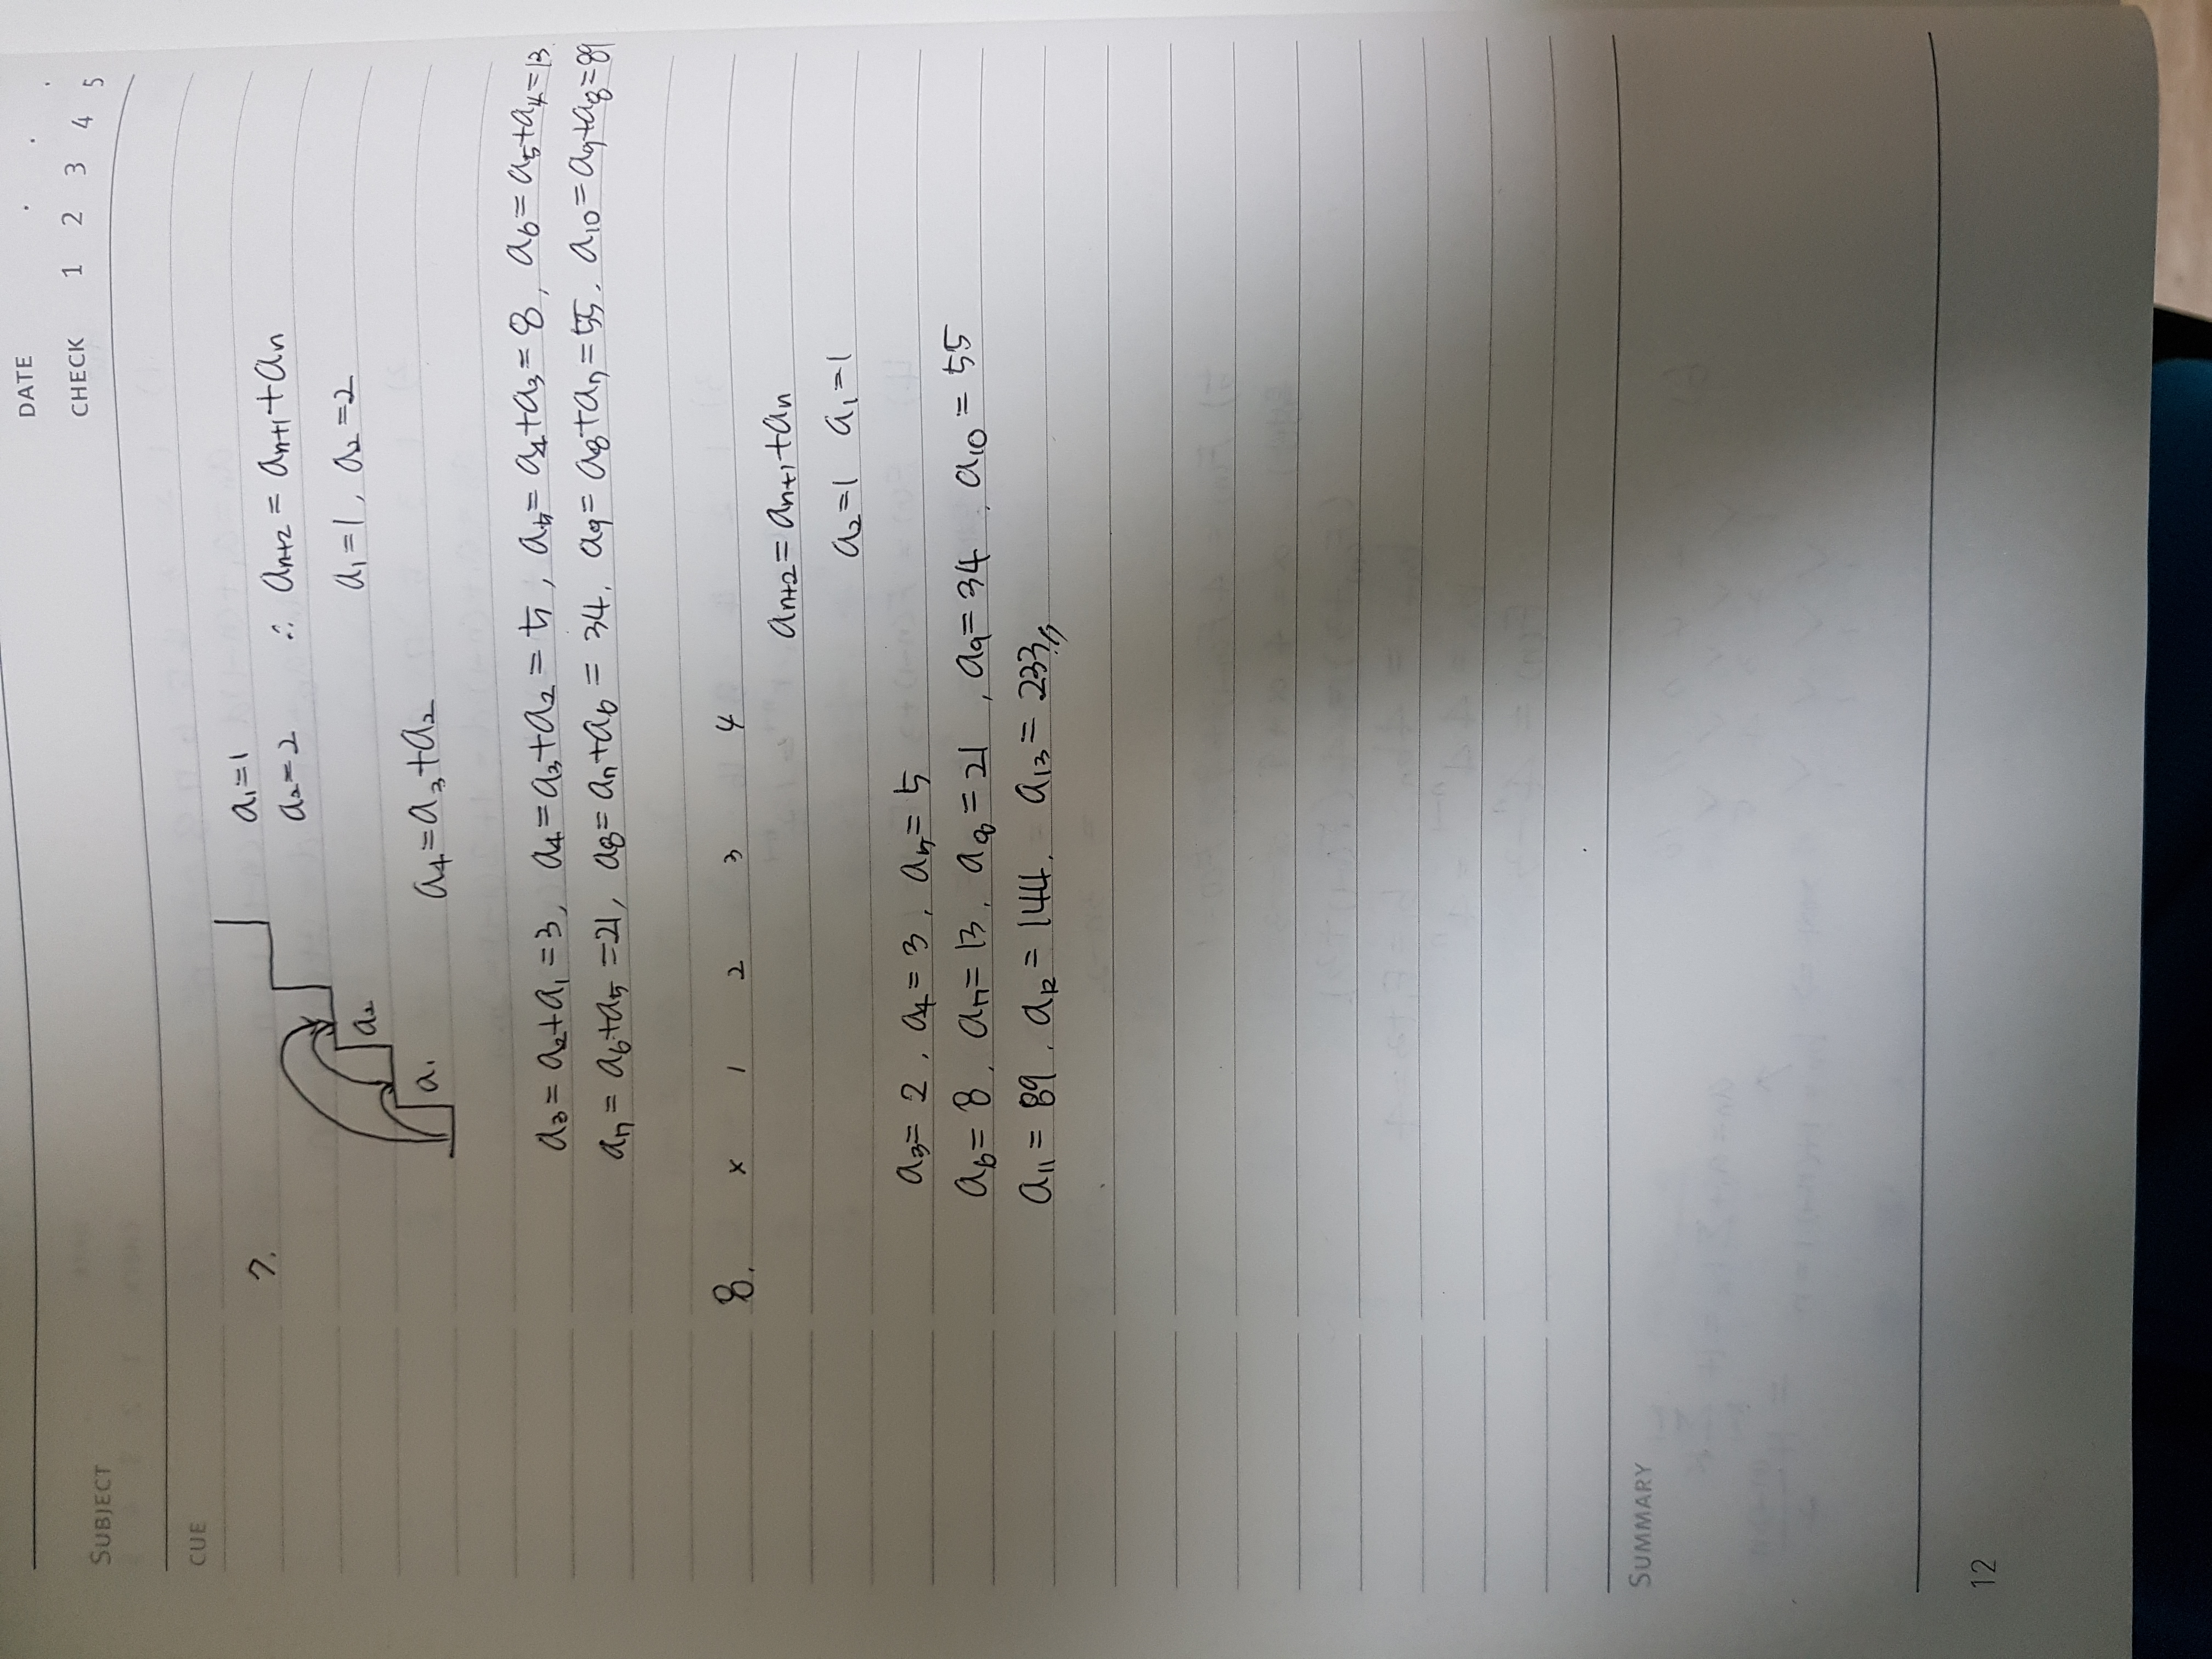 DATE . . .
SUBJECT
CHECK 1 2 3 4 5
CUE
7.
a₁=1
a₂=2 ∴ aₙ₊₂ = aₙ₊₁+aₙ
a₁=1, a₂=2
a₂
a₁
a₄=a₃+a₂
a₃=a₂+a₁=3, a₄=a₃+a₂=5, a₅=a₄+a₃=8, a₆=a₅+a₄=13
a₇=a₆+a₅=21, a₈=a₇+a₆=34, a₉=a₈+a₇=55, a₁₀=a₉+a₈=89
8. x 1 2 3 4
aₙ₊₂=aₙ₊₁+aₙ
a₂=1 a₁=1
a₃=2, a₄=3, a₅=5
a₆=8, a₇=13, a₈=21, a₉=34, a₁₀=55
a₁₁=89, a₁₂=144, a₁₃=233
SUMMARY
12